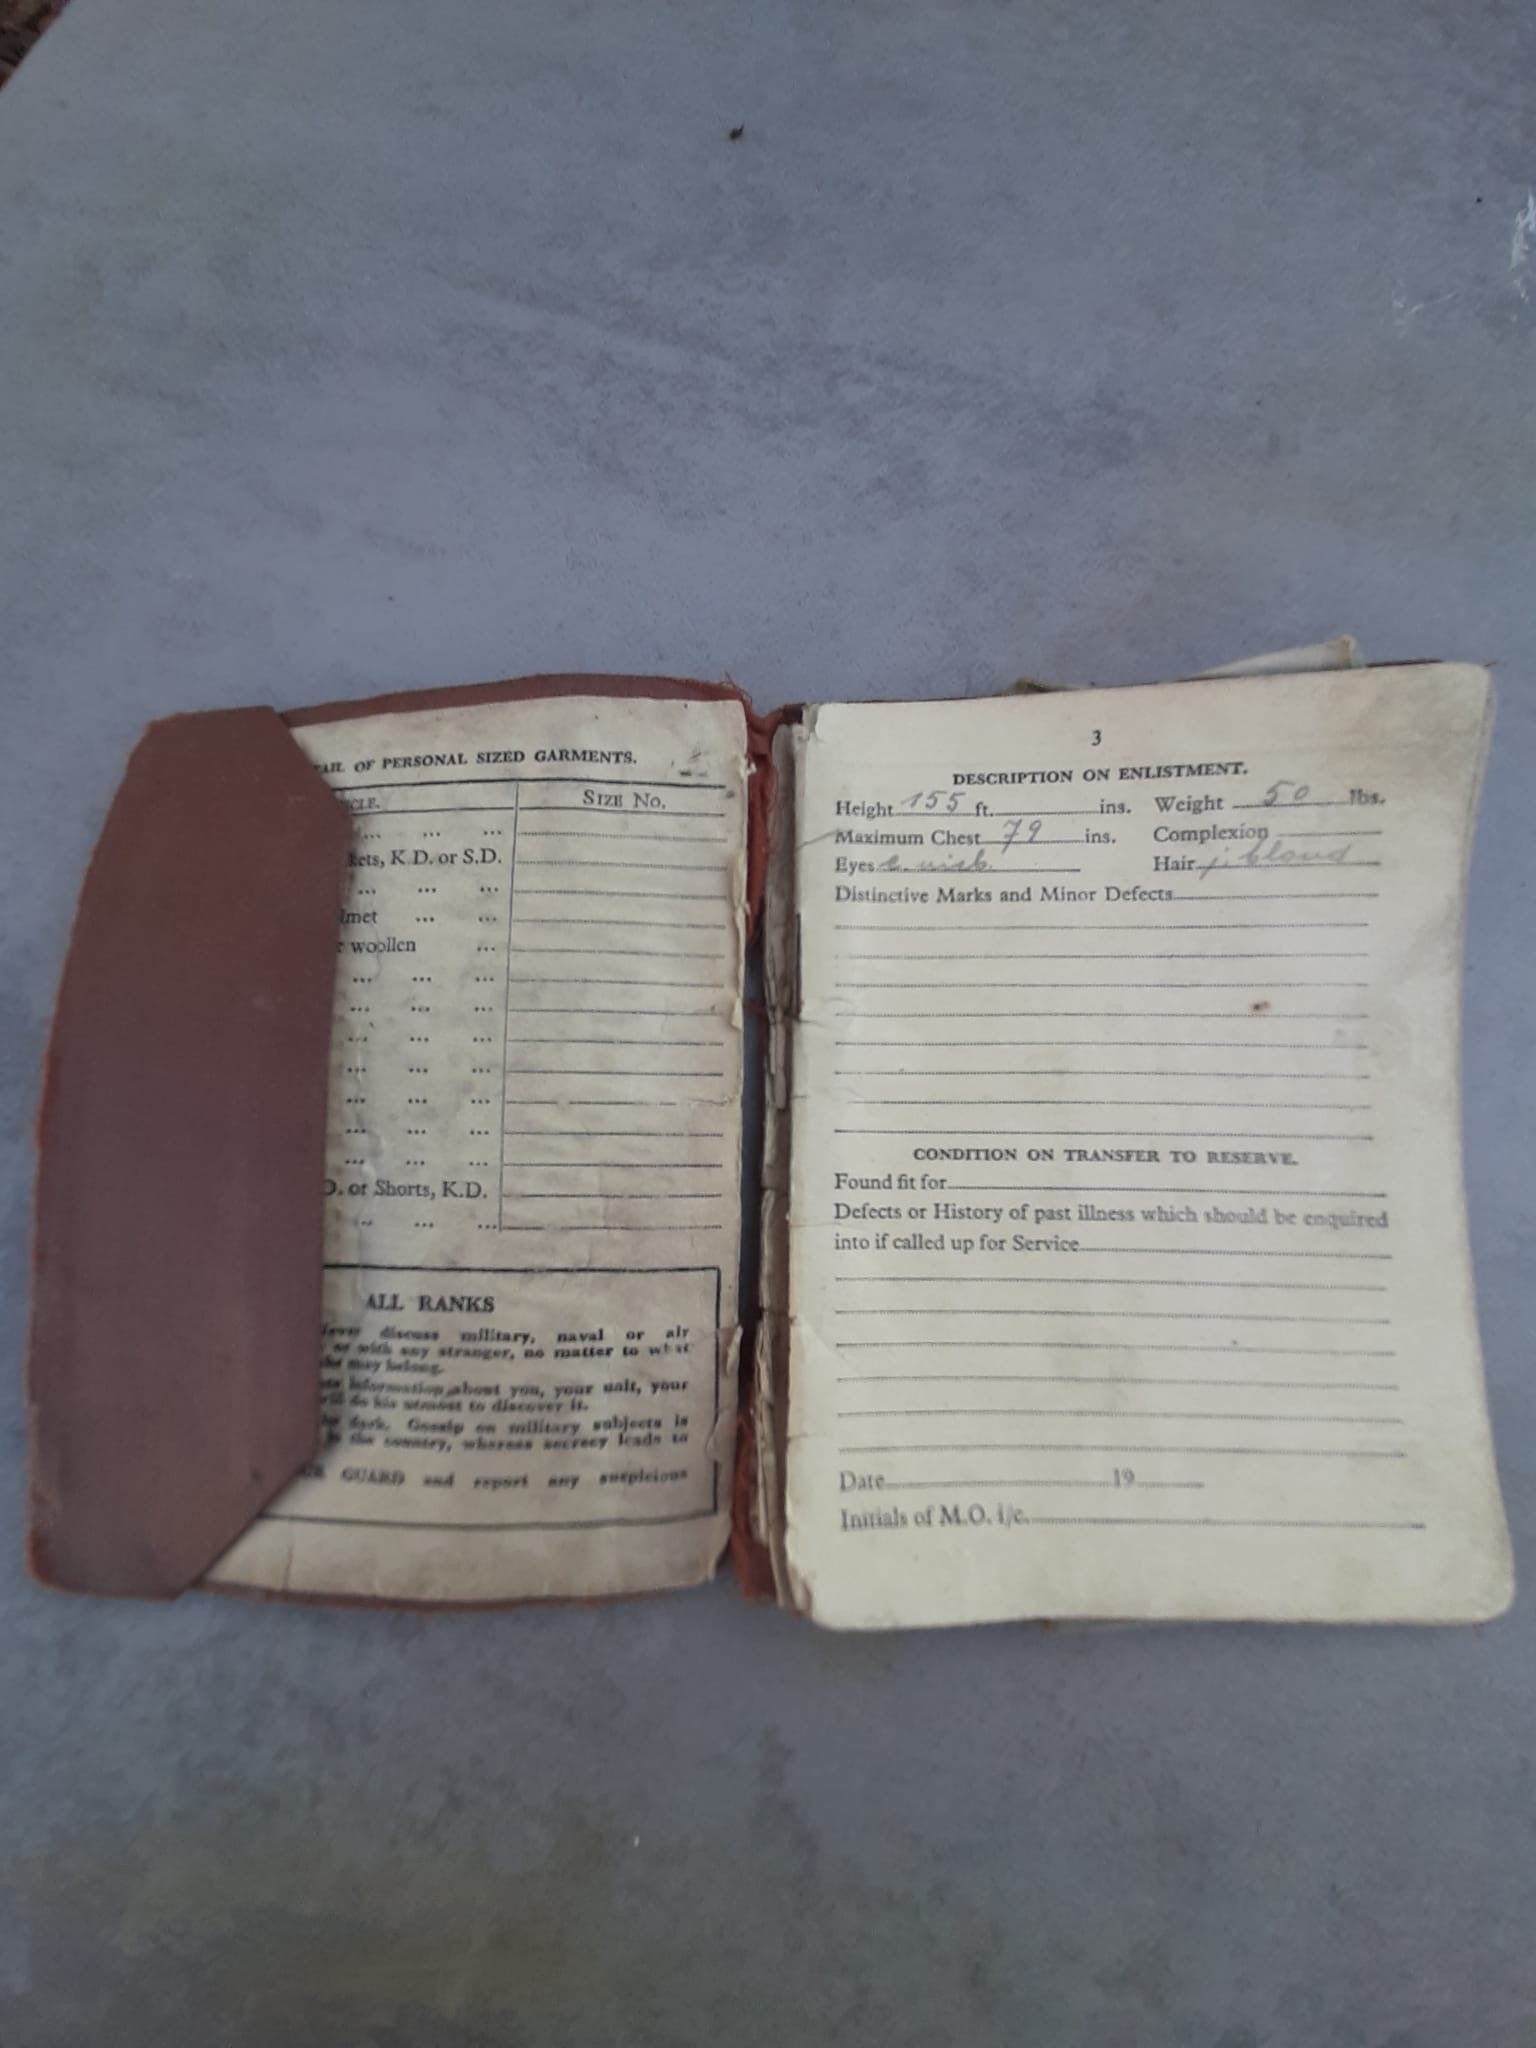 OF PERSONAL SIZED GARMENTS.
SIZE No.
... ... ...
K.D. or S.D.
... ... ...
... ...
woollen ...
... ... ...
... ... ...
... ... ...
... ... ...
... ... ...
... ... ...
... ... ...
or Shorts, K.D.
... ... ...
ALL RANKS
discuss military, naval or air
or with any stranger, no matter to what
may belong.
information about you, your unit, your
do his utmost to discover it.
Gossip on military subjects is
the country, whereas secrecy leads to
GUARD and report any suspicious
3
DESCRIPTION ON ENLISTMENT.
Height 155 ft. ins. Weight 50 lbs.
Maximum Chest 79 ins. Complexion
Eyes Hair j. blond
Distinctive Marks and Minor Defects
CONDITION ON TRANSFER TO RESERVE.
Found fit for
Defects or History of past illness which should be enquired
into if called up for Service
Date 19
Initials of M.O. i/c.